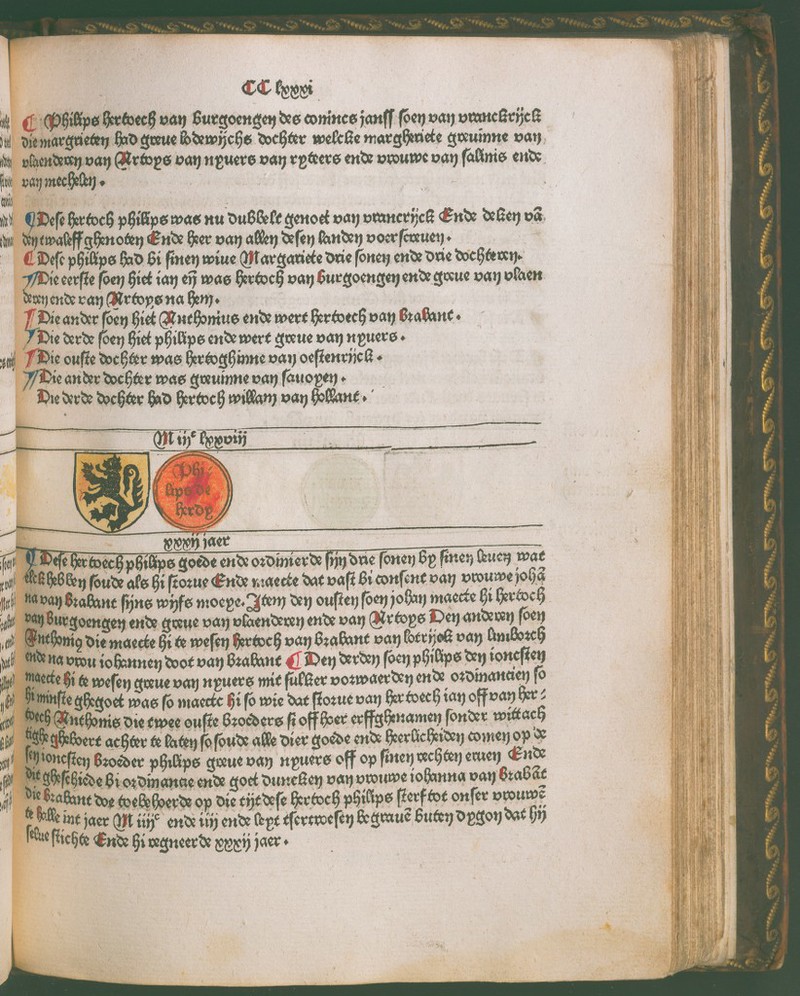 CC lxxxi
Philips hertoech van burgoengen des conincs jansſ ſoen van vranckrijck
die margrieten had greue lodewijchs dochter welcke margheriete greuinne van
vlaenderen van Artoys van nyuers van ryteers ende vrouwe van ſalinis ende
van mechelen.
Deſe hertoch philips was nu dubbelt genoet van vrancrijck Ende deken vā
den twaleff ghenoten Ende heer van allen deſen landen voerſcreuen.
Deſe philips had bi ſinen wiue Margariete drie ſonen ende drie dochteren.
Die eerſte ſoen hiet ian eñ was hertoch van burgoengen ende greue van vlaen
deren ende van Artoys na hem.
Die ander ſoen hiet Anthonius ende wert hertoech van brabant.
Die derde ſoen hiet philips ende wert greue van nyuers.
Die oufte dochter was hertoghinne van oeſtenrijck.
Die ander dochter was greuinne van ſauoyen.
Die derde dochter had hertoch willam van hollant.
M iijᶜ lxxviij
Phi-
lips de
herdy
xxxij jaer
Deſe hertoech philips goede ende ordinierde ſijn drie ſonen by ſinen leuen wat
elck hebben ſoude als hi ſtorue Ende maecte dat vaſt bi conſent van vrouwe johā
na van brabant ſijns wijfs moeye. Item den ouſten ſoen johan maecte hi hertoch
van burgoengen ende greue van vlaenderen ende van Artoys Den anderen ſoen
Anthonio die maecte hi te weſen hertoch van brabant van lotrijck van limborch
ende na vrou iohannen doot van brabant Den derden ſoen philips den ioncſten
maecte hi te weſen greue van nyuers mit ſulker vorwaerden ende ordinancien ſo
hi minſte ghegoet was ſo maecte hi ſo wie dat ſtorue van hertoech ian off van her-
toech Anthonis die twee ouſte broeders ſi off hoer erffghenamen ſonder wittach
tighe gheboert achter te laten ſo ſoude alle dier goede ende heerlicheiden comen op de
ſen ioncſten broeder philips greue van nyuers off op ſinen rechten eruen Ende
dit gheſchiede bi ordinancie ende goet duncken van vrouwe iohanna van brabāt
die brabant doe toebehoerde op die tijt deſe hertoch philips ſterf tot onſer vrouwē
te halle int jaer M iiijᶜ ende iiij ende leyt tſertroeſen begrauē buten dygon dat hij
ſelue ſtichte Ende hi regneerde xxxij jaer.